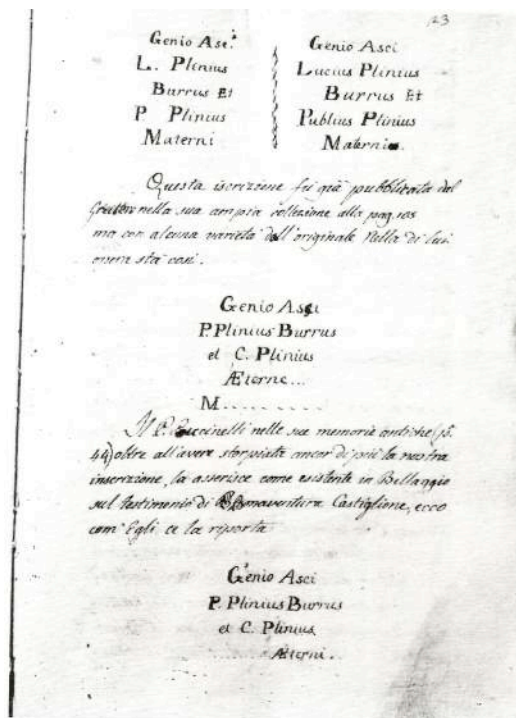 23
Genio Asc.ⁱ
L. Plinius
Burrus Et
P. Plinius
Materni
Genio Asci
Lucius Plinius
Burrus Et
Publius Plinius
Materni
Questa iscrizione fu già pubblicata dal
Grutero nella sua ampia collezione alla pag.
ma con alcuna varietà dall'originale Nella di lui
opera sta così.
Genio Asci
P. Plinius Burrus
et C. Plinius
Æterne...
M.........
Il P. Puccinelli nelle sue memorie antiche (p.
44) oltre all'avere storpiata ancor di più la nostra
inscrizione, la asserisce come esistente in Bellaggio
sul testimonio di Bonaventura Castiglione, ecco
com' Egli ce la riporta
Genio Asci
P. Plinius Burrus
et C. Plinius
Æterni.